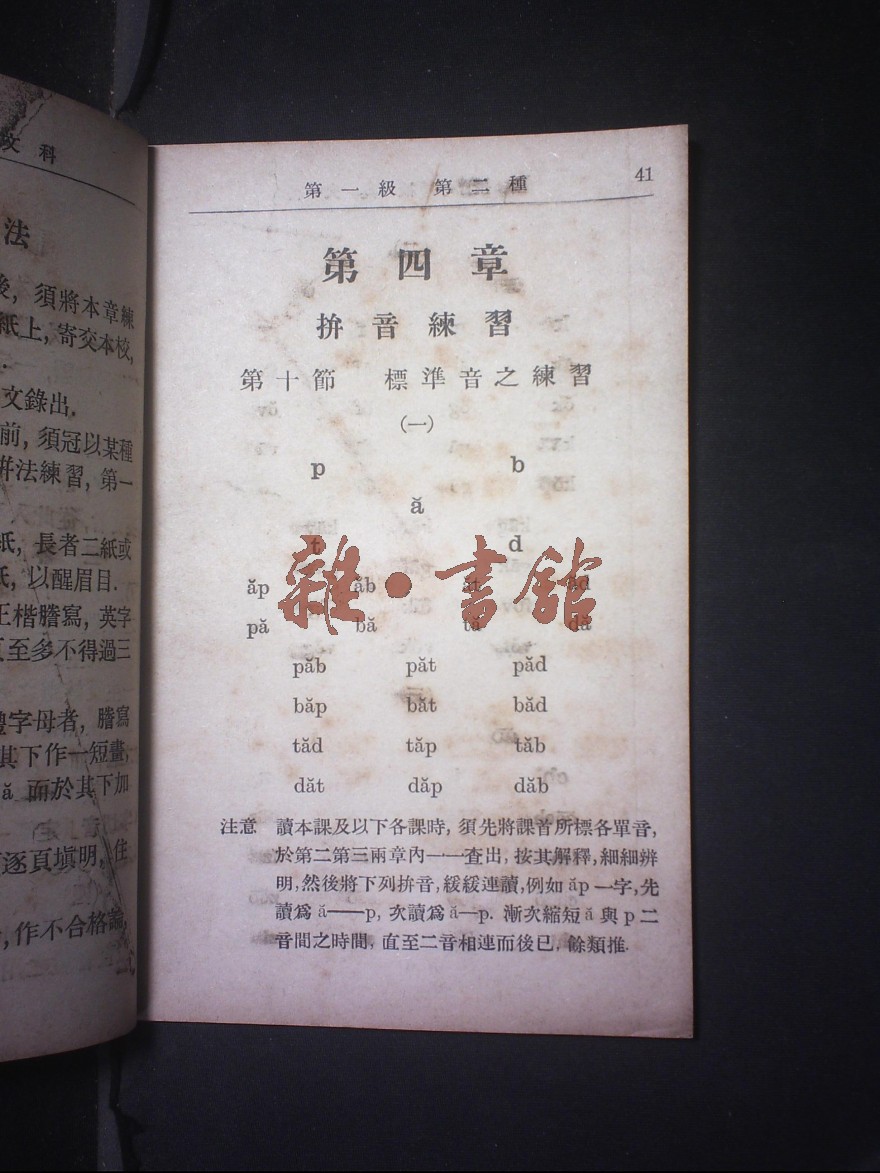 文科
法
後, 須將本章練
紙上, 寄交本校,
文錄出.
前, 須冠以某種
拼法練習, 第一
紙, 長者二紙或
紙, 以醒眉目.
正楷謄寫, 英字
至多不得過三
字母者, 謄寫
其下作一短畫,
ă 而於其下加
逐頁塡明, 住
作不合格論,
第一級 第二種 41
第四章
拚音練習
第十節 標準音之練習
(一)
p b
ă
t d
ăp ăb ăt ăd
pă bă tă dă
păb păt păd
băp băt băd
tăd tăp tăb
dăt dăp dăb
注意 讀本課及以下各課時, 須先將課首所標各單音,
於第二第三兩章內一一查出, 按其解釋, 細細辨
明, 然後將下列拚音, 緩緩連讀, 例如 ăp 一字, 先
讀爲 ă——p, 次讀爲 ă—p. 漸次縮短 ă 與 p 二
音間之時間, 直至二音相連而後已. 餘類推.
雜·書館